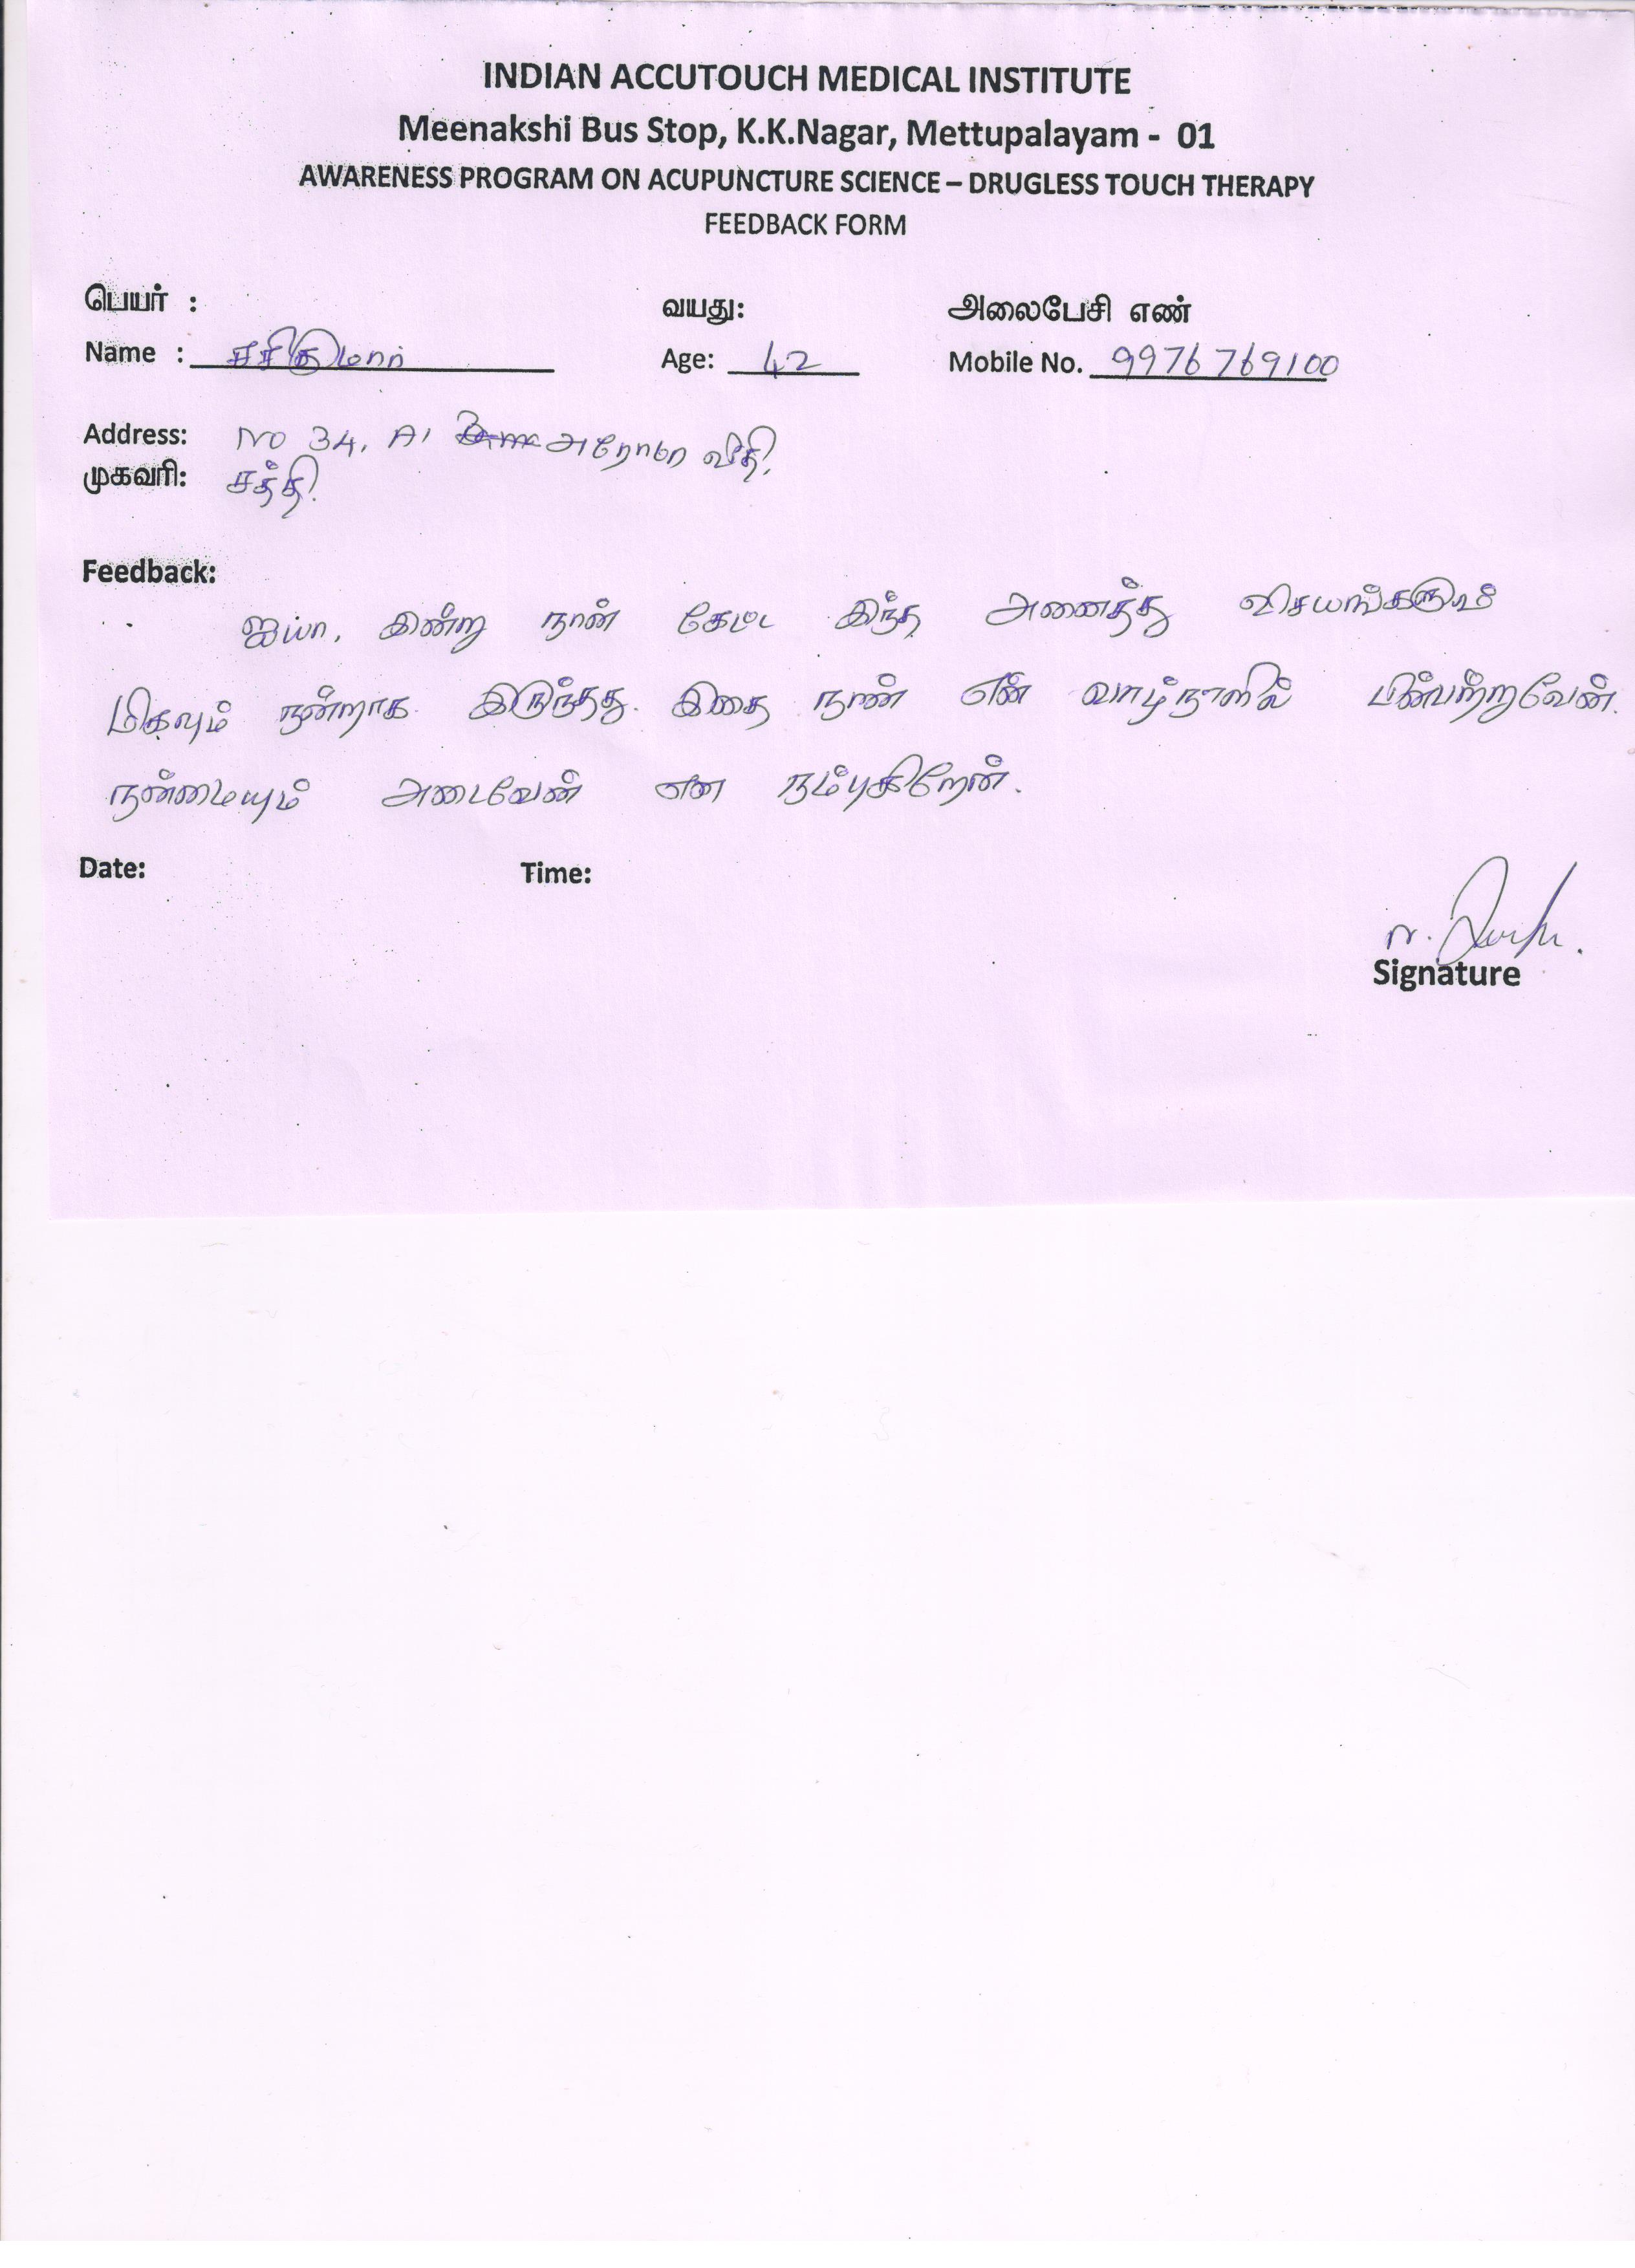 INDIAN ACCUTOUCH MEDICAL INSTITUTE
Meenakshi Bus Stop, K.K.Nagar, Mettupalayam - 01
AWARENESS PROGRAM ON ACUPUNCTURE SCIENCE – DRUGLESS TOUCH THERAPY
FEEDBACK FORM
பெயர் : வயது: அலைபேசி எண்
Name : சசிகுமார் Age: 42 Mobile No. 9976769100
Address: NO 34, A1 வீதி,
முகவரி: சத்தி.
Feedback:
ஐயா, இன்று நான் கேட்ட இந்த அனைத்து விசயங்களும்
மிகவும் நன்றாக இருந்தது. இதை நான் என் வாழ்நாளில் பின்பற்றுவேன்.
நன்மையும் அடைவேன் என நம்புகிறேன்.
Date: Time:
Signature